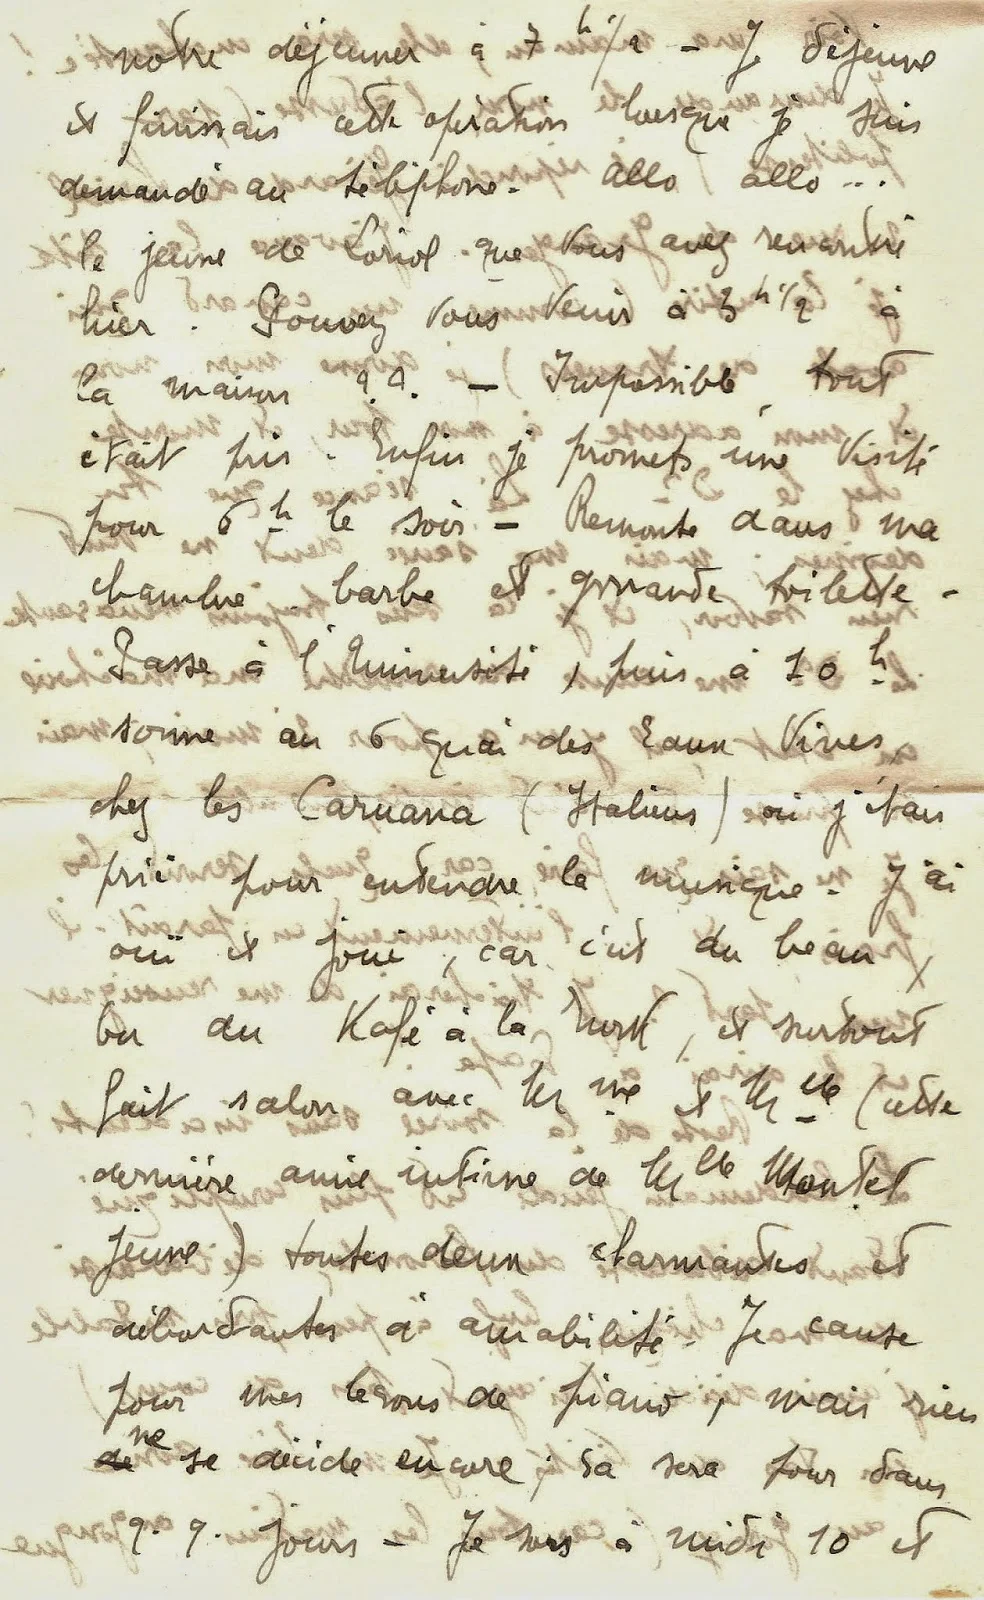 notre déjeuner à 7 h 1/2 – Je déjeune
et finissais cette opération lorsque je suis
demandé au téléphone. allo allo...
le jeune de Loriol que vous avez rencontré
hier. Pouvez vous venir à 3 h 1/2 à
la maison ?? – Impossible, tout
était pris. Enfin je promets une visite
pour 6 h le soir – Remonte dans ma
chambre barbe et grande toilette –
Passe à l'Université, puis à 10 h
sonne au 6 quai des Eaux Vives
chez les Caruana (Italiens) où j'étais
prié pour entendre la musique. J'ai
ouï et joué, car c'est du beau,
bu du Kafé à la Turk, et surtout
fait salon avec Mme et Mlle (cette
dernière amie intime de Mlle Montet
jeune) toutes deux charmantes et
débordantes d'amabilité. Je cause
pour mes leçons de piano, mais rien
ne se décide encore; sa sera pour dans
q. q. jours – Je sors à midi 10 et